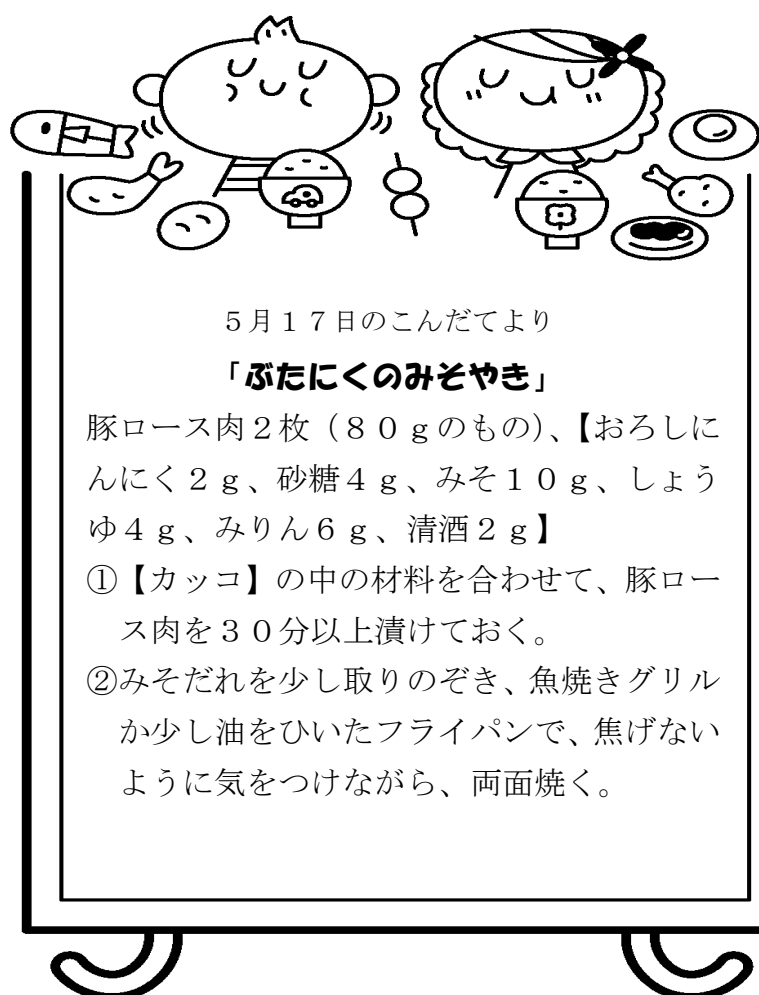 ５月１７日のこんだてより
「ぶたにくのみそやき」
豚ロース肉２枚（８０ｇのもの）、【おろしに
んにく２ｇ、砂糖４ｇ、みそ１０ｇ、しょう
ゆ４ｇ、みりん６ｇ、清酒２ｇ】
①【カッコ】の中の材料を合わせて、豚ロー
ス肉を３０分以上漬けておく。
②みそだれを少し取りのぞき、魚焼きグリル
か少し油をひいたフライパンで、焦げない
ように気をつけながら、両面焼く。